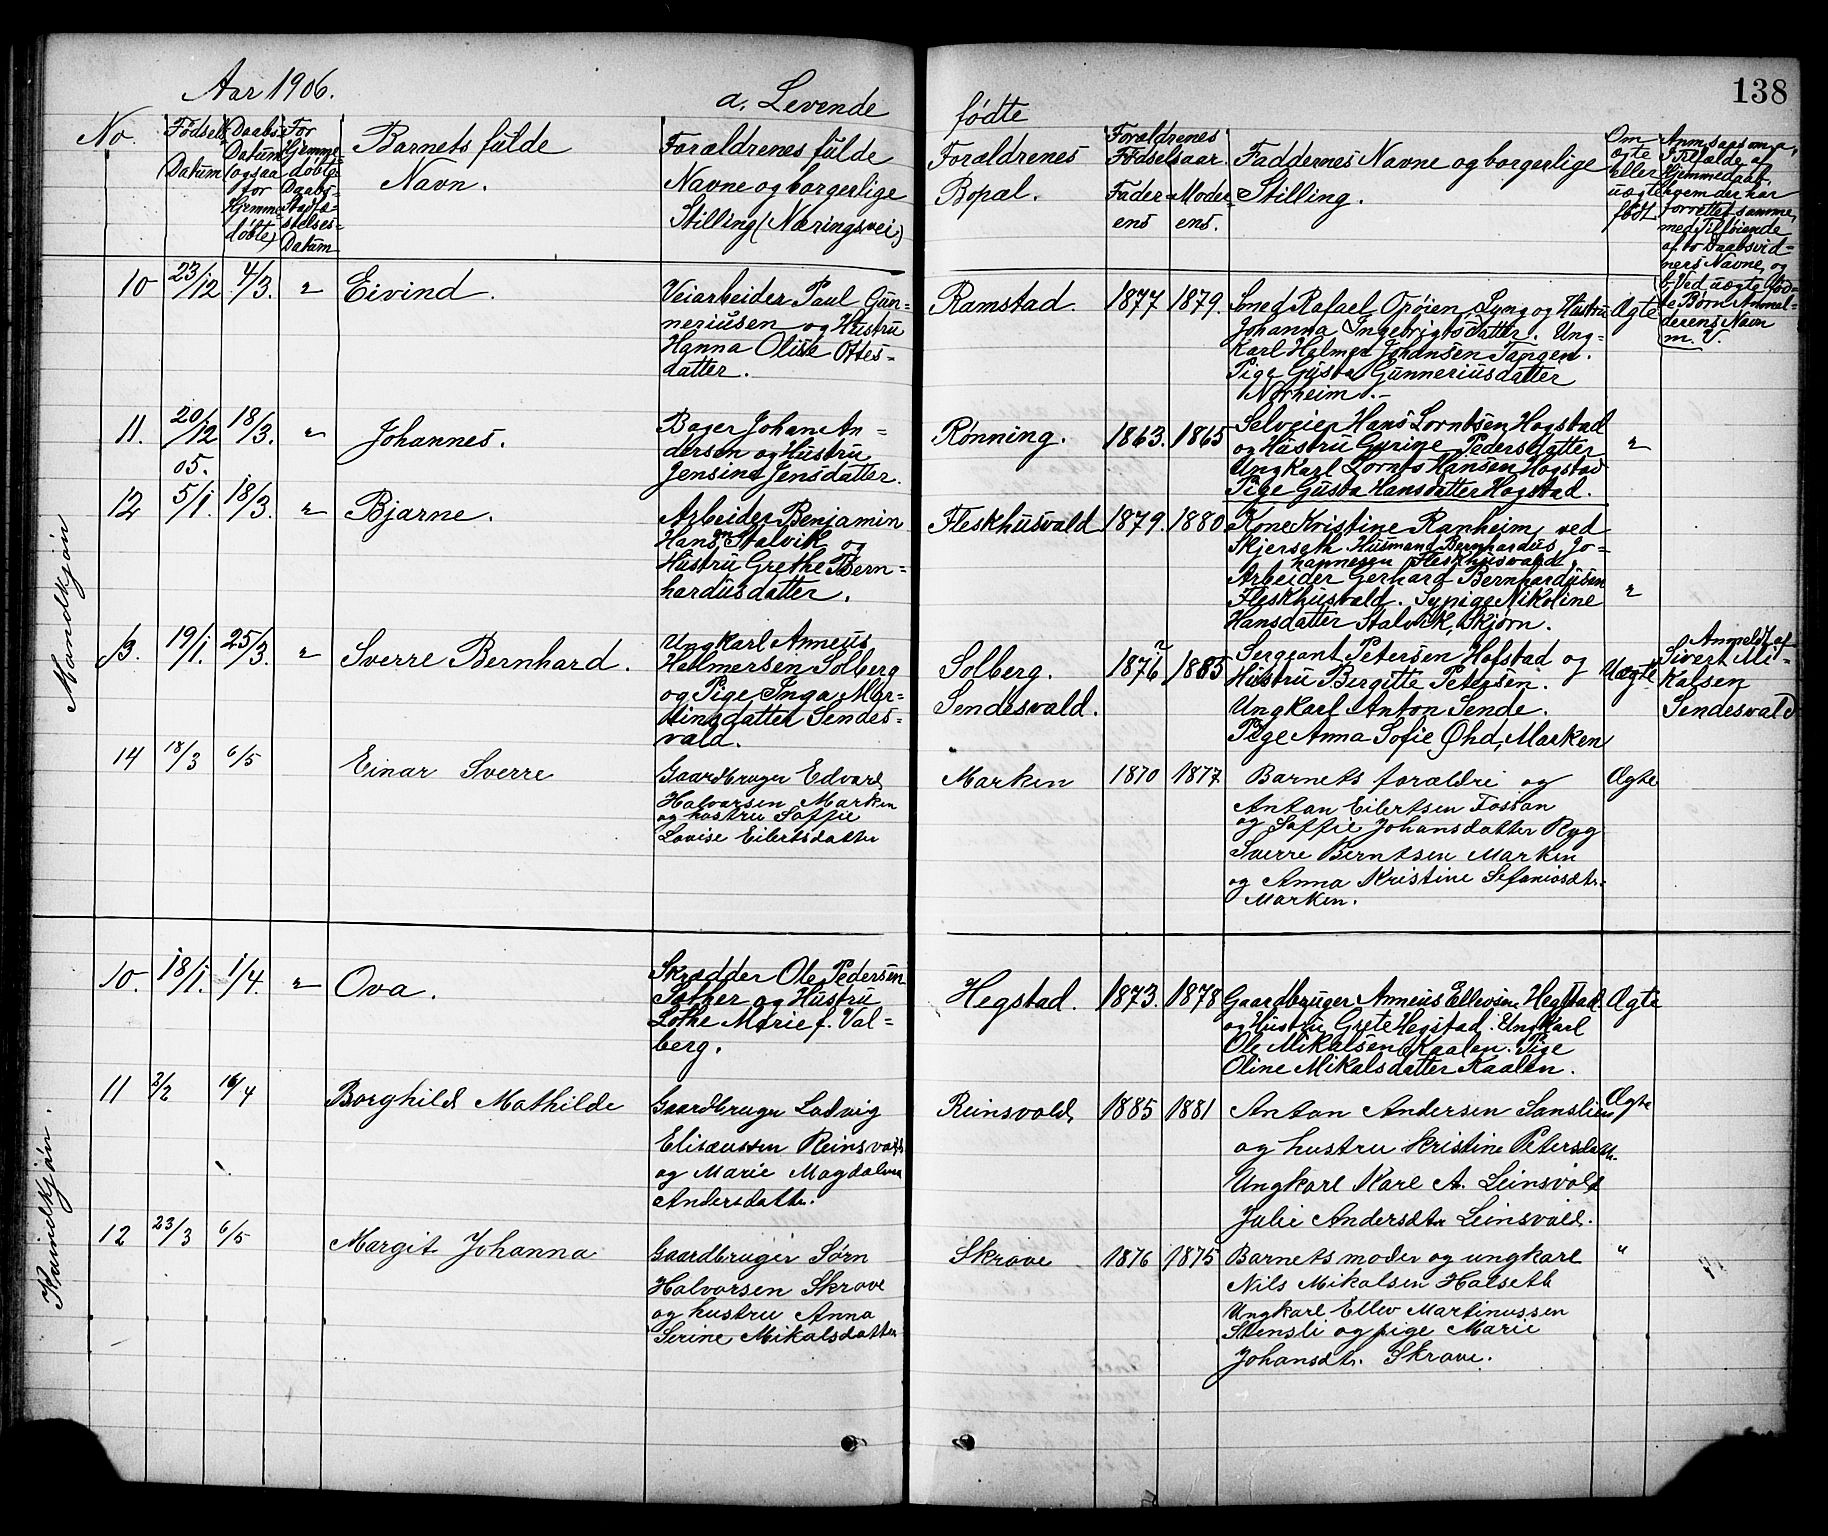 138
Aar 1906.
a. Levende fødte
No.
Fødsels Datum
Daabs-Datum ogsaa for Hjemme-døbte
For Hjemme-døbte Daabs-Stadfæ-stelses-Datum
Barnets fulde Navn.
Forældrenes fulde Navne og borgerlige Stilling (Næringsvei)
Forældrenes Bopæl.
Forældrenes Fødselsaar.
Faderens
Moderens.
Faddernes Navne og borgerlige Stilling.
Om ægte eller uægte født
Anm. saasom a, Tilfælde af Hjemmedaab, hvem der har forrettet samme, med Tilføiende af to Daabsvidners Navne, og b, Ved uægte fødte Børn Anmelderens Navn m. V.
Mandkjøn
10
23/12
4/3.
"
Eivind.
Veiarbeider Paul Gun-
neriusen og Hustru
Hanna Olisa Ottes-
datter.
Ramstad.
1877
1879.
Smed Rafael Opøien Lyng og Hustru
Johanna Ingebrigtsdatter. Ung-
karl Halmer Johansen Tangen.
Pige Gusta Gunneriusdatter
Norheim.
Ægte
11.
20/12 05.
18/3.
"
Johannes.
Bager Johan An-
dersen og Hustru
Jensine Jensdatter.
Rønning.
1863.
1865
Selveier Hans Lorntsen Hogstad
og Hustru Gurine Pedersdatter
Ungkarl Lornts Hansen Hogstad
Pige Gusta Hansdatter Hogstad.
"
12
5/1.
18/3.
"
Bjarne.
Arbeider Benjamin
Hansen Stalvik og
Hustru Grethe Bern-
hardusdatter.
Fleskhusvald
1879.
1880
Kone Kristine Ranheim, ved
Skjerseth. Husmand Bernhardus Jo-
hannesen Fleskhusvald
Arbeider Gerhard Bernhardusen
Fleskhusvald. Sypige Nikoline
Hansdatter Stalvik, Skjørn.
"
13.
19/1.
25/3.
"
Sverre Bernhard.
Ungkarl Anneus
Halmersen Solberg
og Pige Inga Mar-
tinsdatter Sendes-
vald.
Solberg.
Sendesvald.
1876
1885
Sergeant Petersen Hofstad og
Hustru Birgitte Petersen.
Ungkarl Anton Sende.
Pige Anna Sofie Øhd, Marken
Uægte
Anmeldt af
Sivert Mi-
kalsen
Sendesvald
14
18/3
6/5
Einar Sverre
Gaardbruger Edvard
Halvorsen Marken
og hustru Soffie
Lovise Eilertsdatter
Marken
1870
1877
Barnets forældre og
Anton Eilertsen Fossan
og Soffie Johansdatter Ryg
Sverre Berntsen Marken
og Anna Kristine Sefaniasdtr.
Marken.
Ægte
Kvindkjøn.
10.
18/1.
1/4.
"
Ova.
Skrædder Ole Pedersen
Sather og Hustru
Lothe Marie f. Val-
berg.
Hegstad.
1873.
1878
Gaardbruger Anneus Ellevsen Hegstad
og Hustru Grete Hegstad. Ungkarl
Ole Mikalsen Kaalen. Pige
Oline Mikalsdatter Kaalen.
Ægte
11
3/2
16/4
Borghild Mathilde
Gaardbruger Ludvig
Elisæussen Reinsvald
og Marie Magdalena
Andersdatter.
Reinsvald
1885
1881
Anton Andersen Sanslien
og hustru Kristine Petersdatter.
Ungkarl Karl A. Leinsvold
Julie Andersdtr Leinsvald.
Ægte
12
23/3
6/5
Margit Johanna
Gaardbruger Sørn
Halvorsen Skrove
og hustru Anna
Serine Mikalsdatter
Skrove
1876
1875
Barnets moder og ungkarl
Nils Mikalsen Halseth
Ungkarl Ellev Martinussen
Stensli og pige Marie
Johansdtr. Skrove.
"